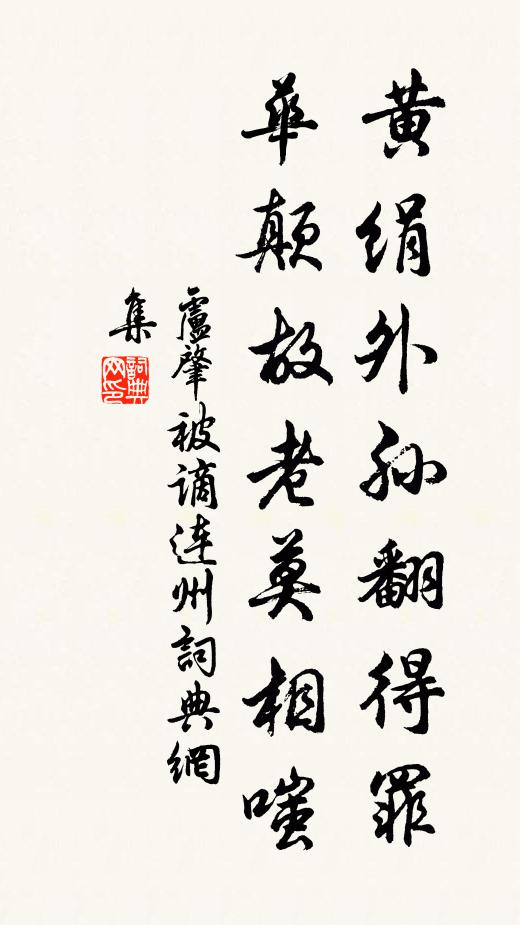 黄絹外孙翻得罪
華顛故老莫相嗤
盧肇被谪連州詞典網
集
詞典
网印